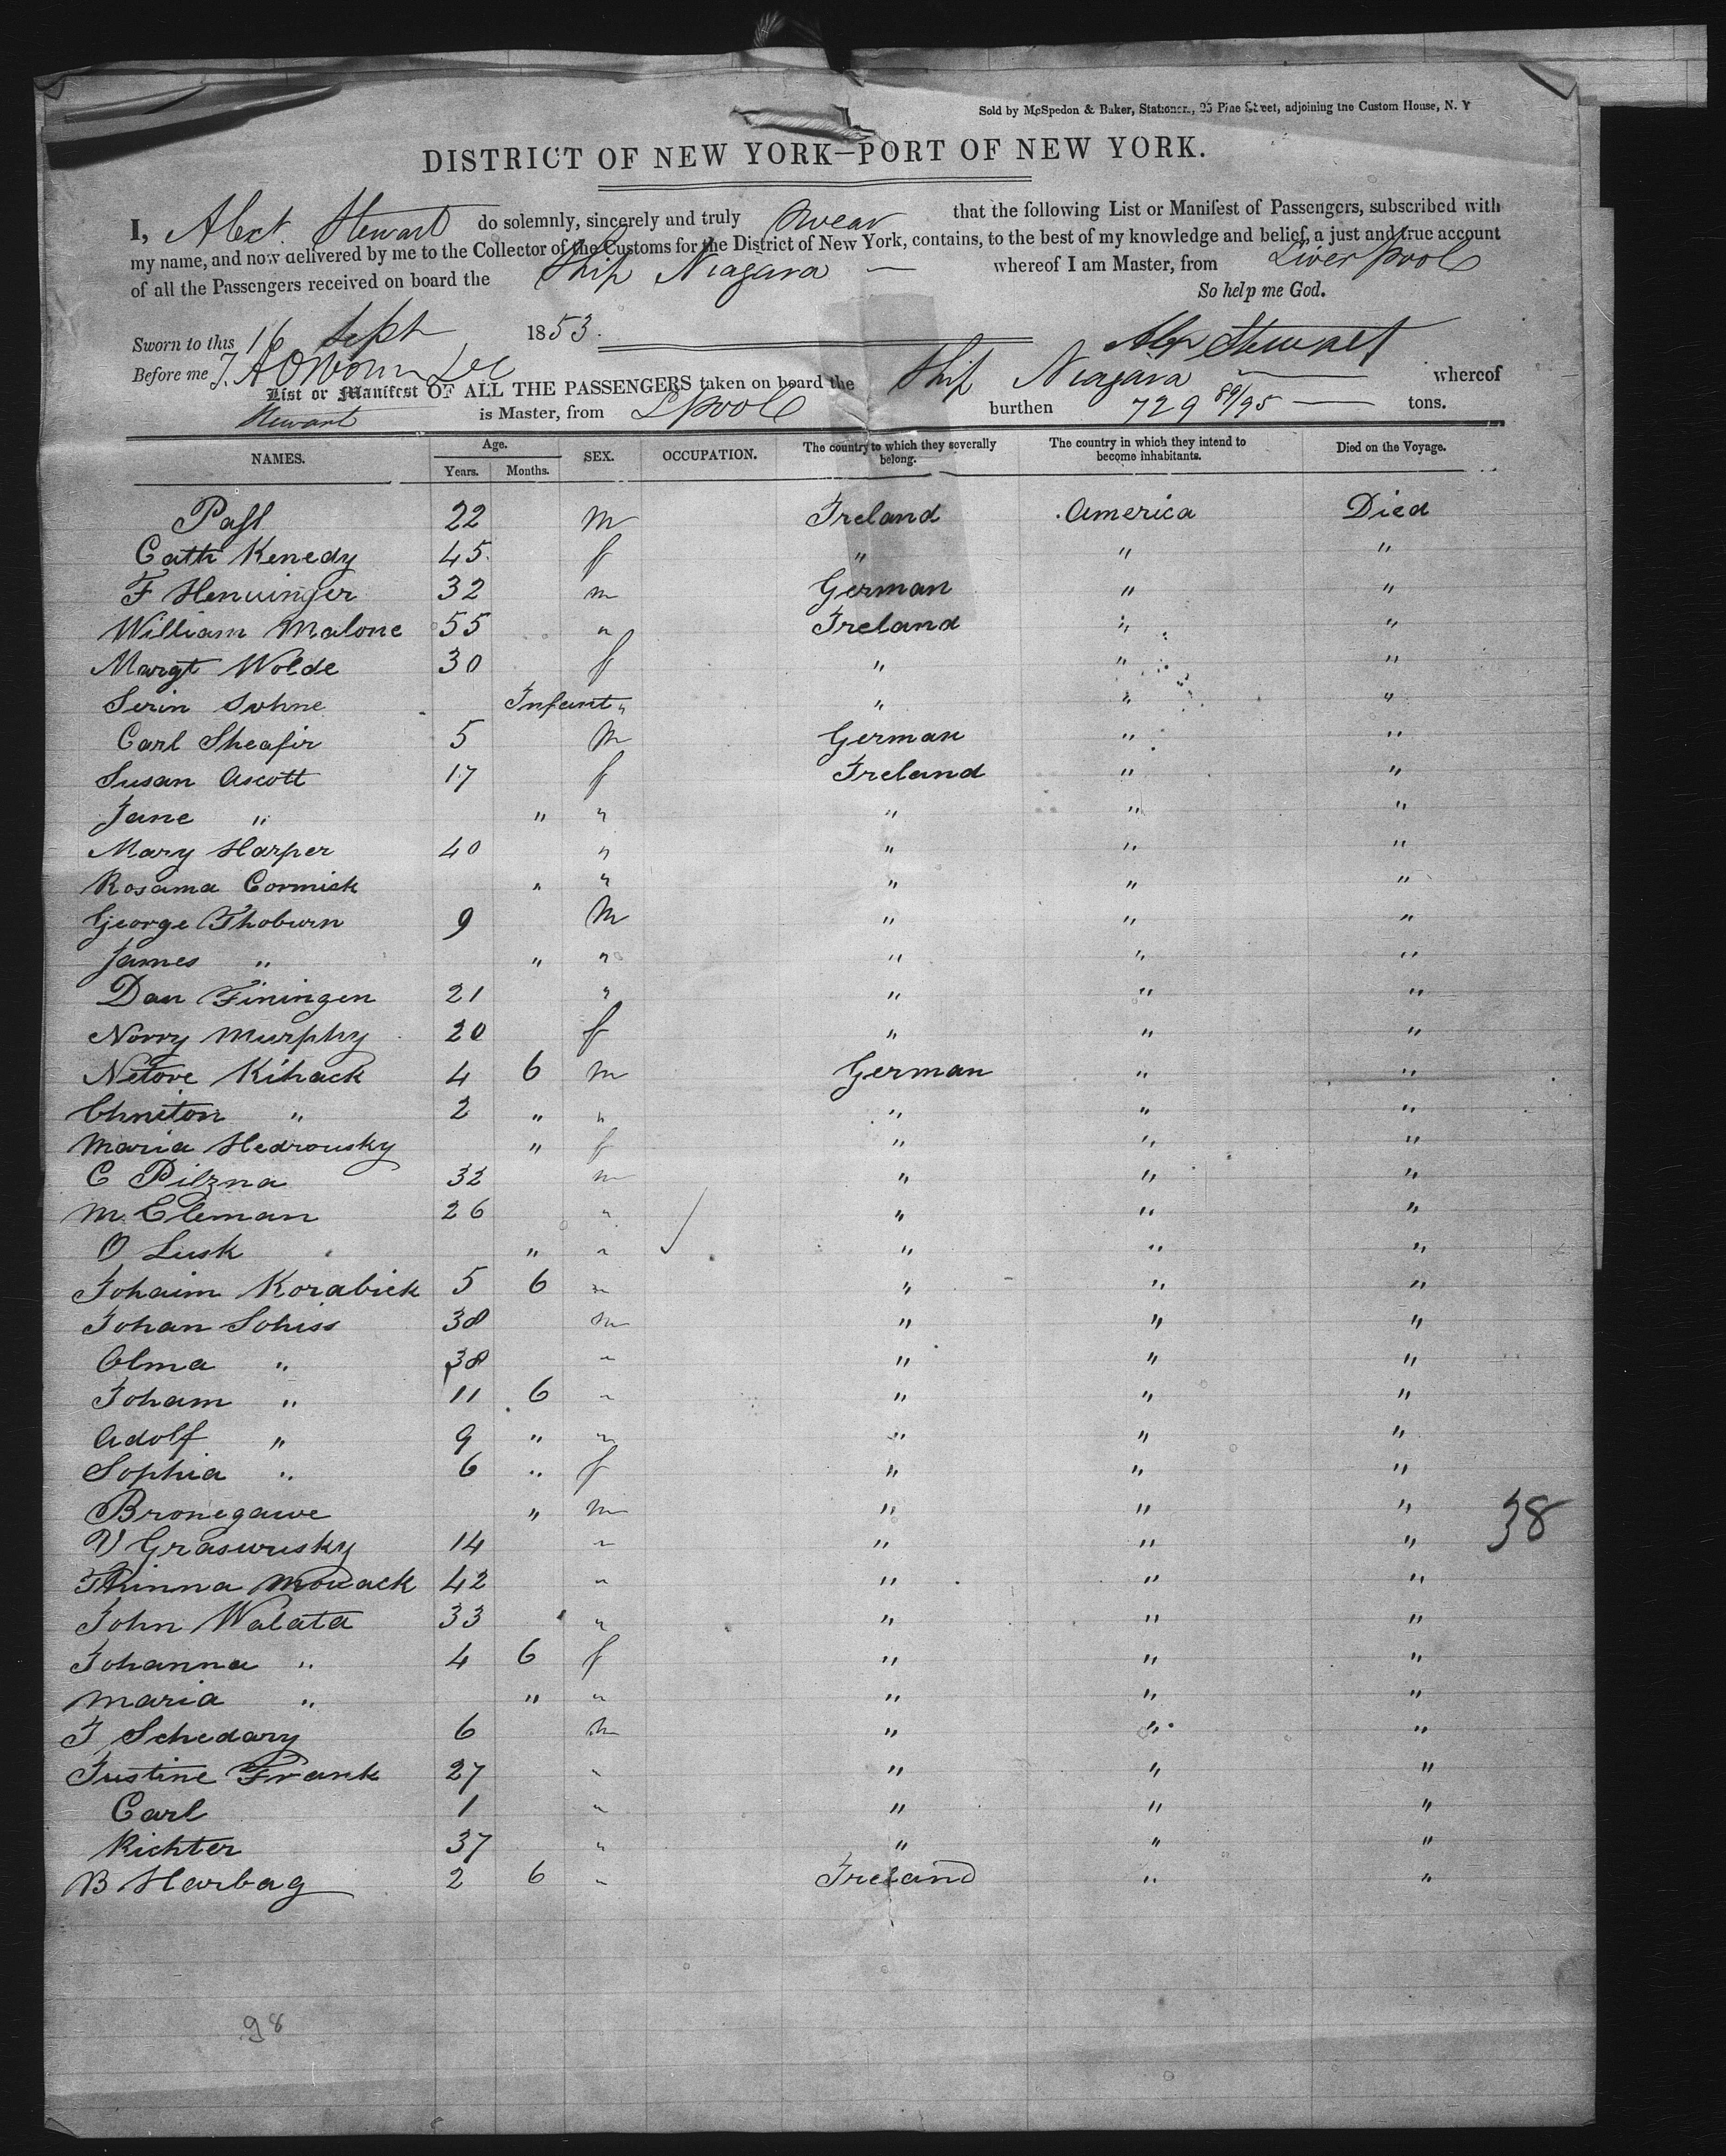 Sold by McSpedon & Baker, Stationers, 25 Pine Street, adjoining the Custom House, N. Y
DISTRICT OF NEW YORK—PORT OF NEW YORK.
I, Alext. Stewart do solemnly, sincerely and truly swear that the following List or Manifest of Passengers, subscribed with
my name, and now delivered by me to the Collector of the Customs for the District of New York, contains, to the best of my knowledge and belief, a just and true account
of all the Passengers received on board the Ship Niagara — whereof I am Master, from Liverpool
So help me God.
Sworn to this 16 Sept 1853.
Alex Stewart
Before me
List or Manifest OF ALL THE PASSENGERS taken on board the Ship Niagara — whereof
Stewart is Master, from Lpool burthen 729 89/95 — tons.
NAMES. Age. Years. Months. SEX. OCCUPATION. The country to which they severally belong. The country in which they intend to become inhabitants. Died on the Voyage.
22 m Ireland America Died
Cath Kenedy 45 f " " "
F 32 m German " "
William Malone 55 " Ireland " "
Margt Wolde 30 f " " "
Infant " " " "
Carl Sheafir 5 m German " "
Susan Ascott 17 f Ireland " "
Jane " " " " " "
Mary Harper 40 " " " "
Rosama Cormick " " " " "
George Thoburn 9 m " " "
James " " " " " "
Dan Finingen 21 " " " "
Norry Murphy 20 f " " "
Netove Kihack 4 6 m German " "
" 2 " " " " "
Maria Hedrousky " f " " "
C Pilzna 32 m " " "
M. Eleman 26 " " " "
O Lusk " " " " "
Johaim Korabick 5 6 " " " "
Johan Sohiss 38 m " " "
Olma " 38 " " " "
Joham " 11 6 " " " "
Adolf " 9 " " " " "
Sophia " 6 " f " " "
Bronegawe " m " " "
V 14 " " " "
42 " " " "
John Walata 33 " " " "
Johanna " 4 6 f " " "
Maria " " " " " "
J Schedary 6 m " " "
Justine Frank 27 " " " "
Carl 1 " " " "
Richter 37 " " " "
B Harbag 2 6 " Ireland " "
38
98